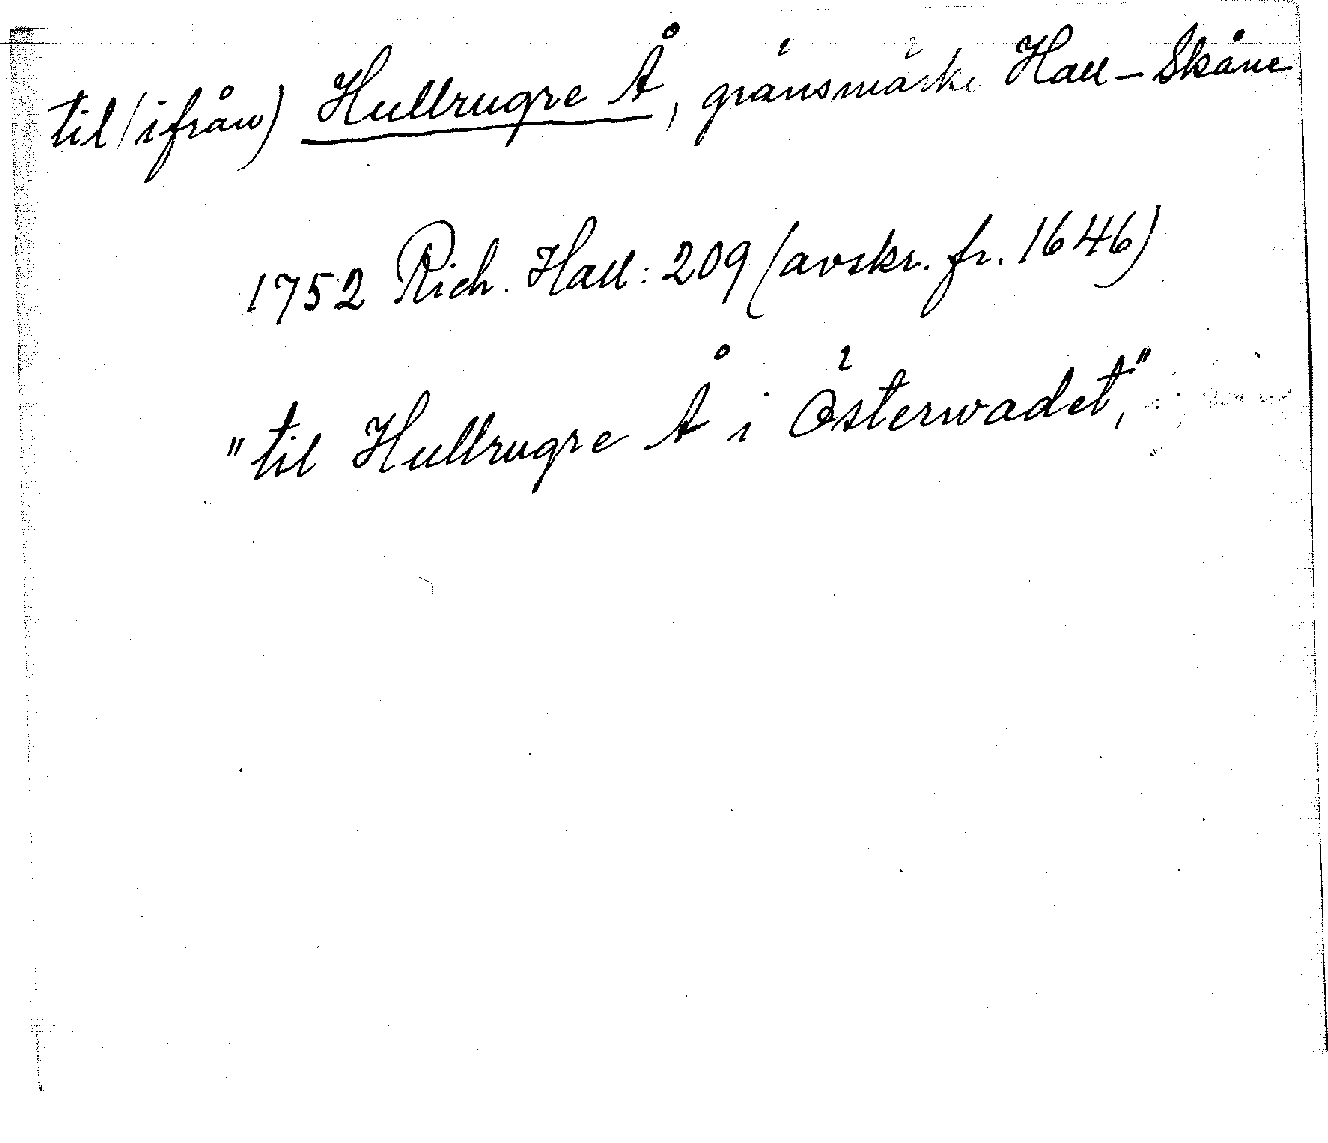 til (ifrån) Hullrugre Å, gränsmärke Hall – Skåne
1752 Rich. Hall: 209 (avskr. fr. 1646)
"til Hullrugre Å i Österwadet,"